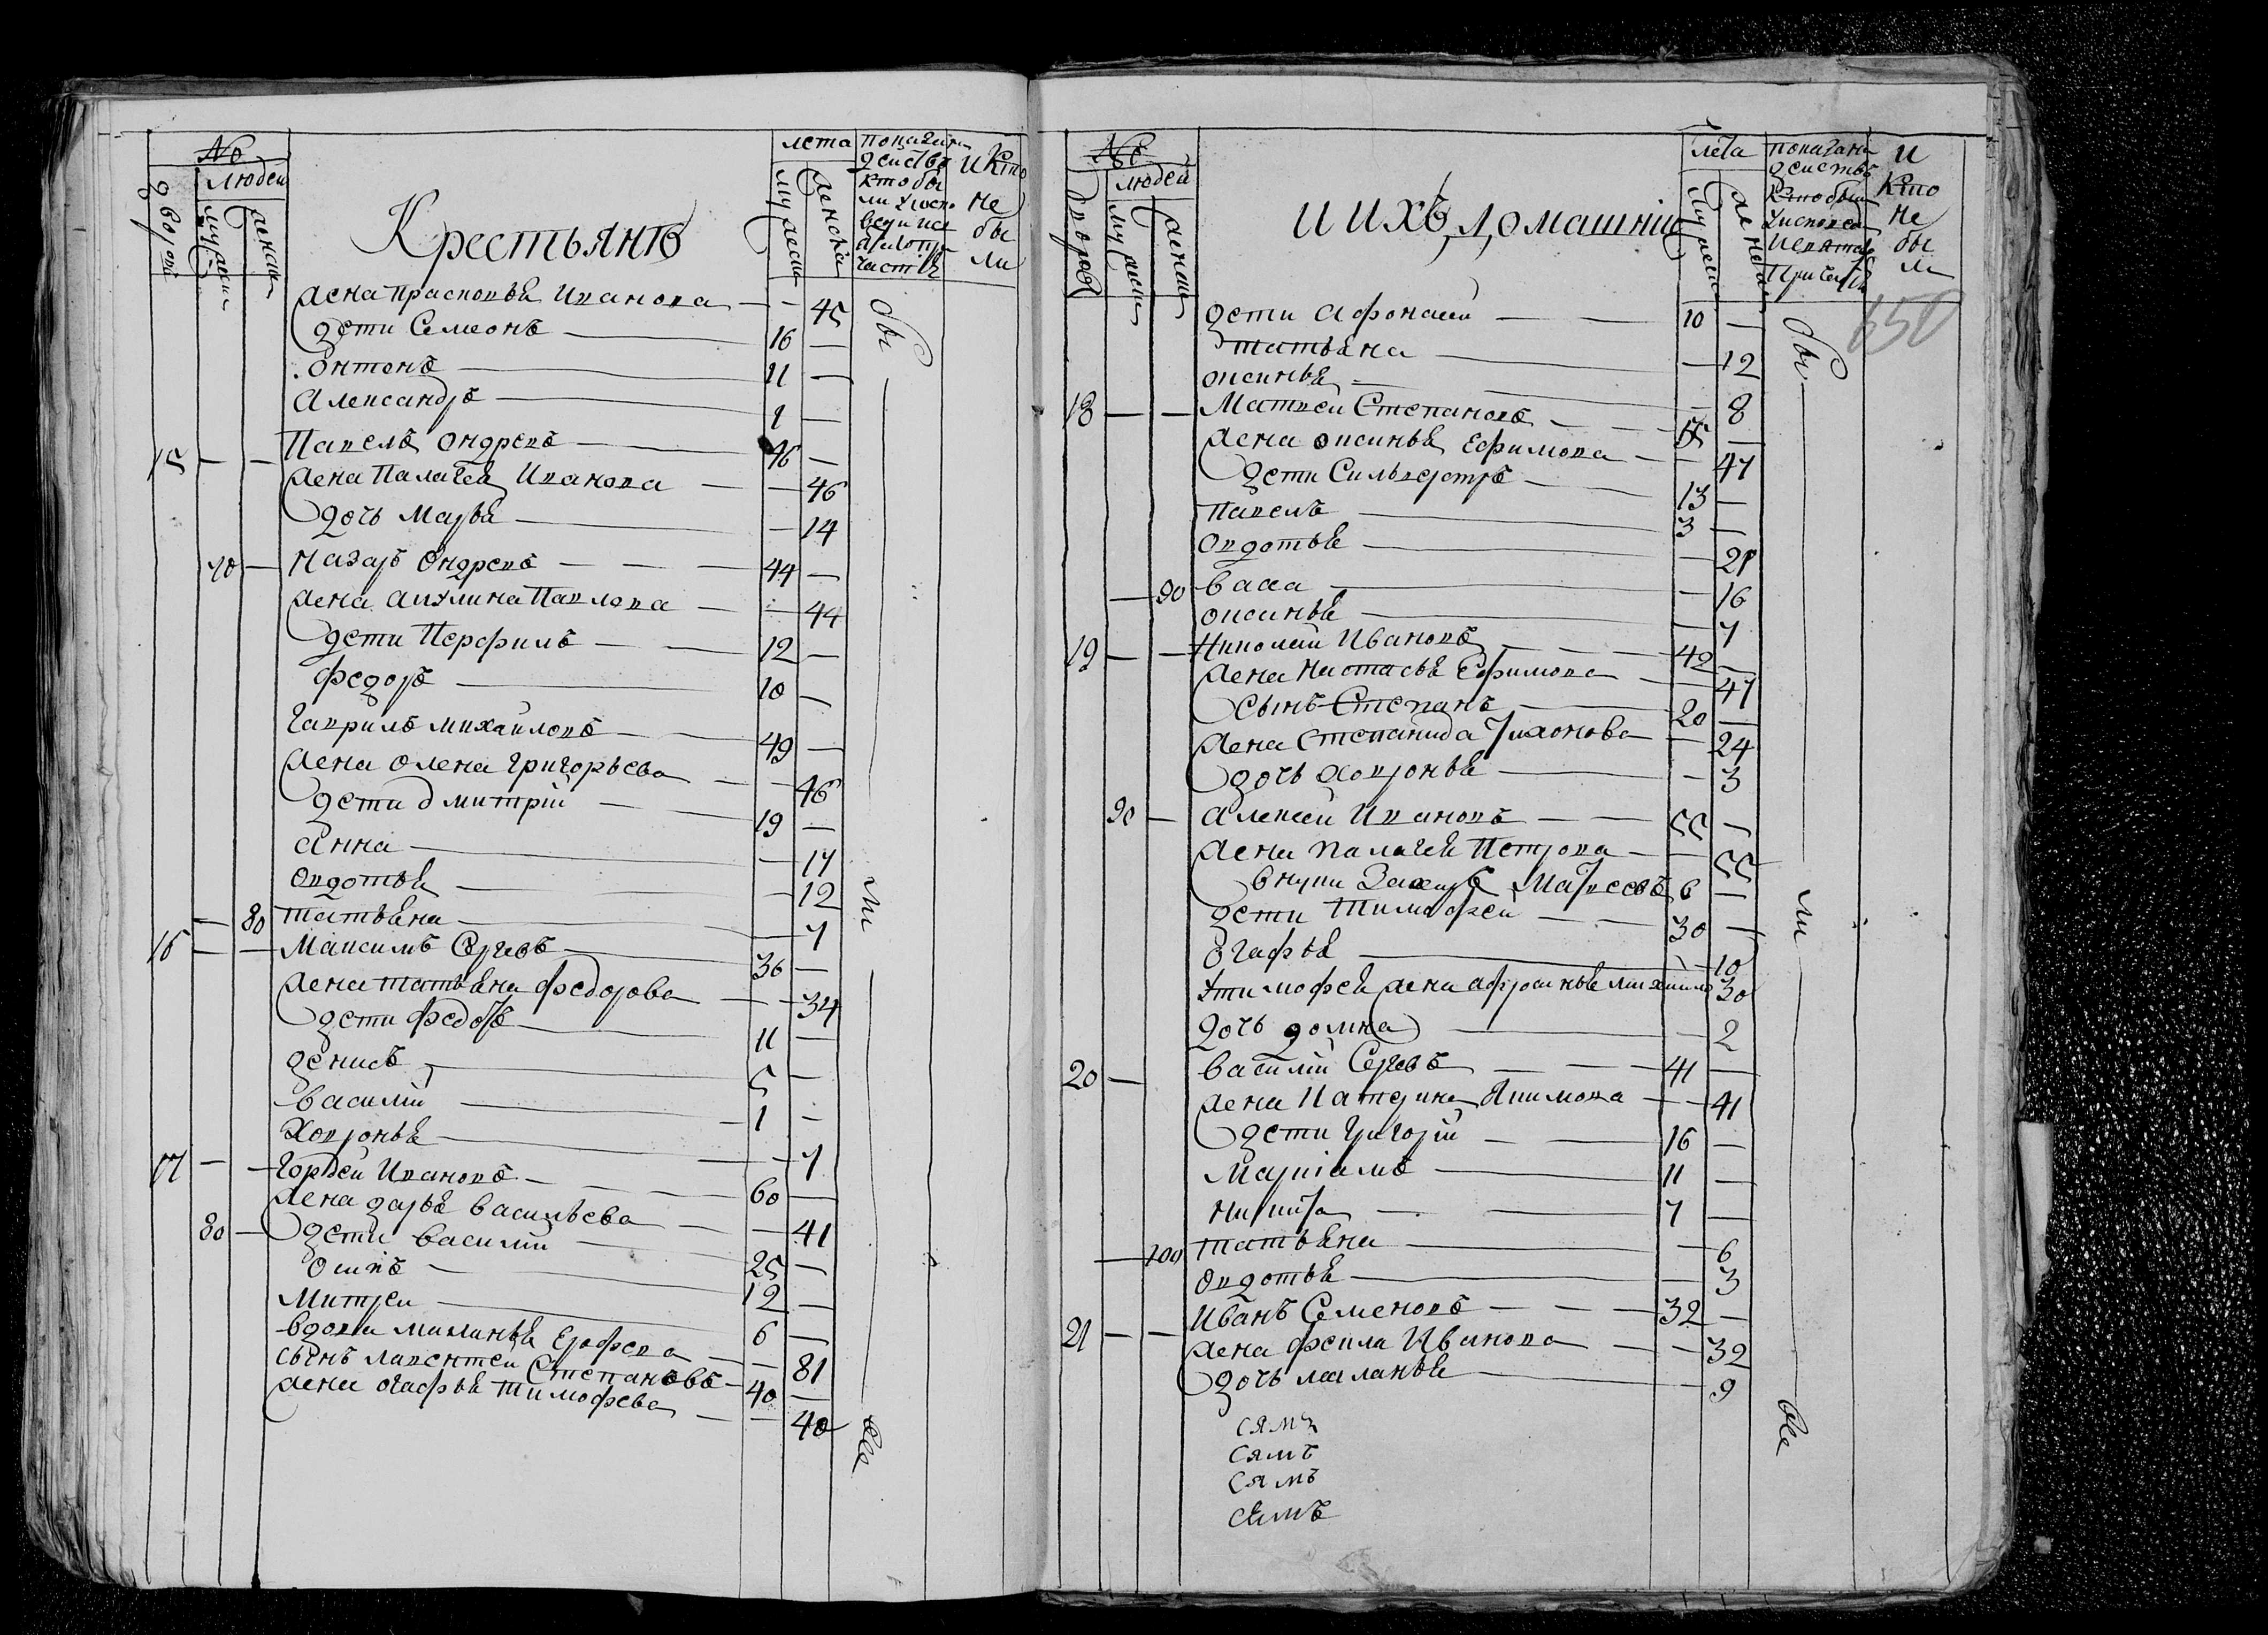 №
людей
дворовъ
мужеск
женск
Крестьянъ
лета
мужеск
женска
показани
действо
кто бы
ли у испо
веди исв
ятаго при
частія
и кто
не
бы
ли
жена Прасковья Иванова — — 45
дети Семионъ — 16 —
Онтонъ — 11 —
Александръ — 1 —
15 — — Павелъ Ондревъ — 46 —
жена Палагея Иванова — — 46
дочь Марья — — 14
70 — Назаръ Ондревъ — — — 44 —
жена Акулина Павлова — — 44
дети Перфилъ — — 12 —
Федоръ — 10 —
Гаврилъ Михаиловъ — — 49 —
жена Олена Григорьева — — 46
дети Дмитрій — 19 —
Анна — — 17
Овдотья — — 12
— 80 Татьяна — 7
16 — — Максимъ Сергевъ — 36 —
жена Татьяна Федорова — — 34
дети Федотъ — 11 —
Денисъ — 5 —
Василій — 1 —
Ховронья — — 7
17 — — Гордеи Ивановъ — — — 60 —
жена Дарья Васильева — — 41
80 — дети Василіи — 25 —
Осипъ — 12 —
Митреи — 6 —
вдова Миланья Ерофева — — 81
сынъ Лавентеи Степановъ — 40 —
жена Огафья Тимофева — — 40
бы
ли
все
№
людей
дворовъ
мужеск
женск
и ихъ домашніи
лета
мужеск
женска
показани
действо
кто были
у исповед
и святаго
причастія
и
кто
не
бы
ли
650
дети Афонасіи — — 10 —
Татьяна — — 12
Оксинья — — 8
18 — — Матвеи Степановъ — — — 45 —
жена Оксинья Ефимова — — 47
дети Сильвертръ — 13 —
Павелъ — 3 —
Овдотья — — 21
— 90 Васа — — 16
Оксинья — — 7
19 — — Николай Ивановъ — — — 42 —
жена Настасья Ефимова — — 47
сынъ Степанъ — 20 —
жена Степанида Тихонова — — 24
дочь Ховронья — — 3
90 — Алексеи Ивановъ — — 55 —
жена Палагея Петрова — — 55
внуки Захаръ Матвеевъ 6 —
дети Тимофеи — — 30 —
Огафья — — 10
у Тимофея жена Афросинья Михаило 30
дочь Домна — — 2
20 — Василіи Сергевъ — — — 41 —
жена Катерина Якимова — — 41
дети Григоріи — — 16 —
Маркіамъ — 11 —
Никита — — 7 —
— 100 Татьяна — — 6
Овдотья — — 3
21 — — Иванъ Семеновъ — — — 32 —
жена Фекла Иванова — — — 32
дочь Маланья — — 9
сямъ
сямъ
сямъ
сямъ
бы
ли
все